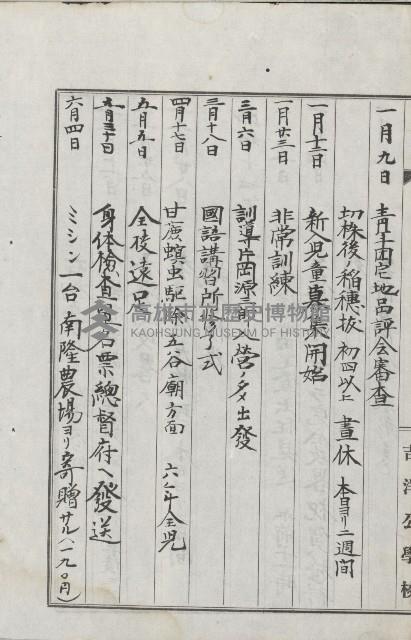 一月九日 青年団宅地品評会審査
切株後ノ稲穂抜 初四以上 昼休 本日ヨリ二週間
一月十二日 新入児童募集開始
一月廿三日 非常訓練
三月六日 訓導片岡源三郎入営ノタメ出發
三月十八日 國語講習所修了式
四月十七日 甘蔗螟虫駆除 五谷廟方面 六ヶ年全児
五月五日 全校遠足
五月三十日 身体検査員名票總督府ヘ發送
六月四日 ミシン一台南隆農場ヨリ寄贈サル(一九〇円)
吉洋公學校
高雄市立歷史博物館
KAOHSIUNG MUSEUM OF HISTORY